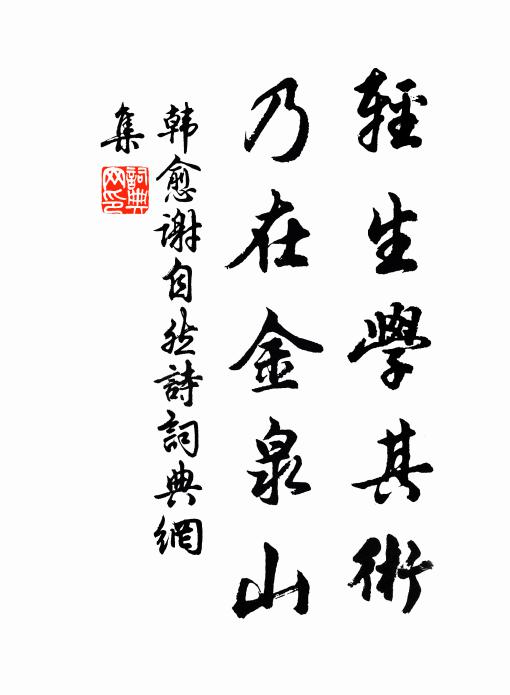 輕生學其術
乃在金泉山
韩愈谢自然詩詞典網
集
詞典网印